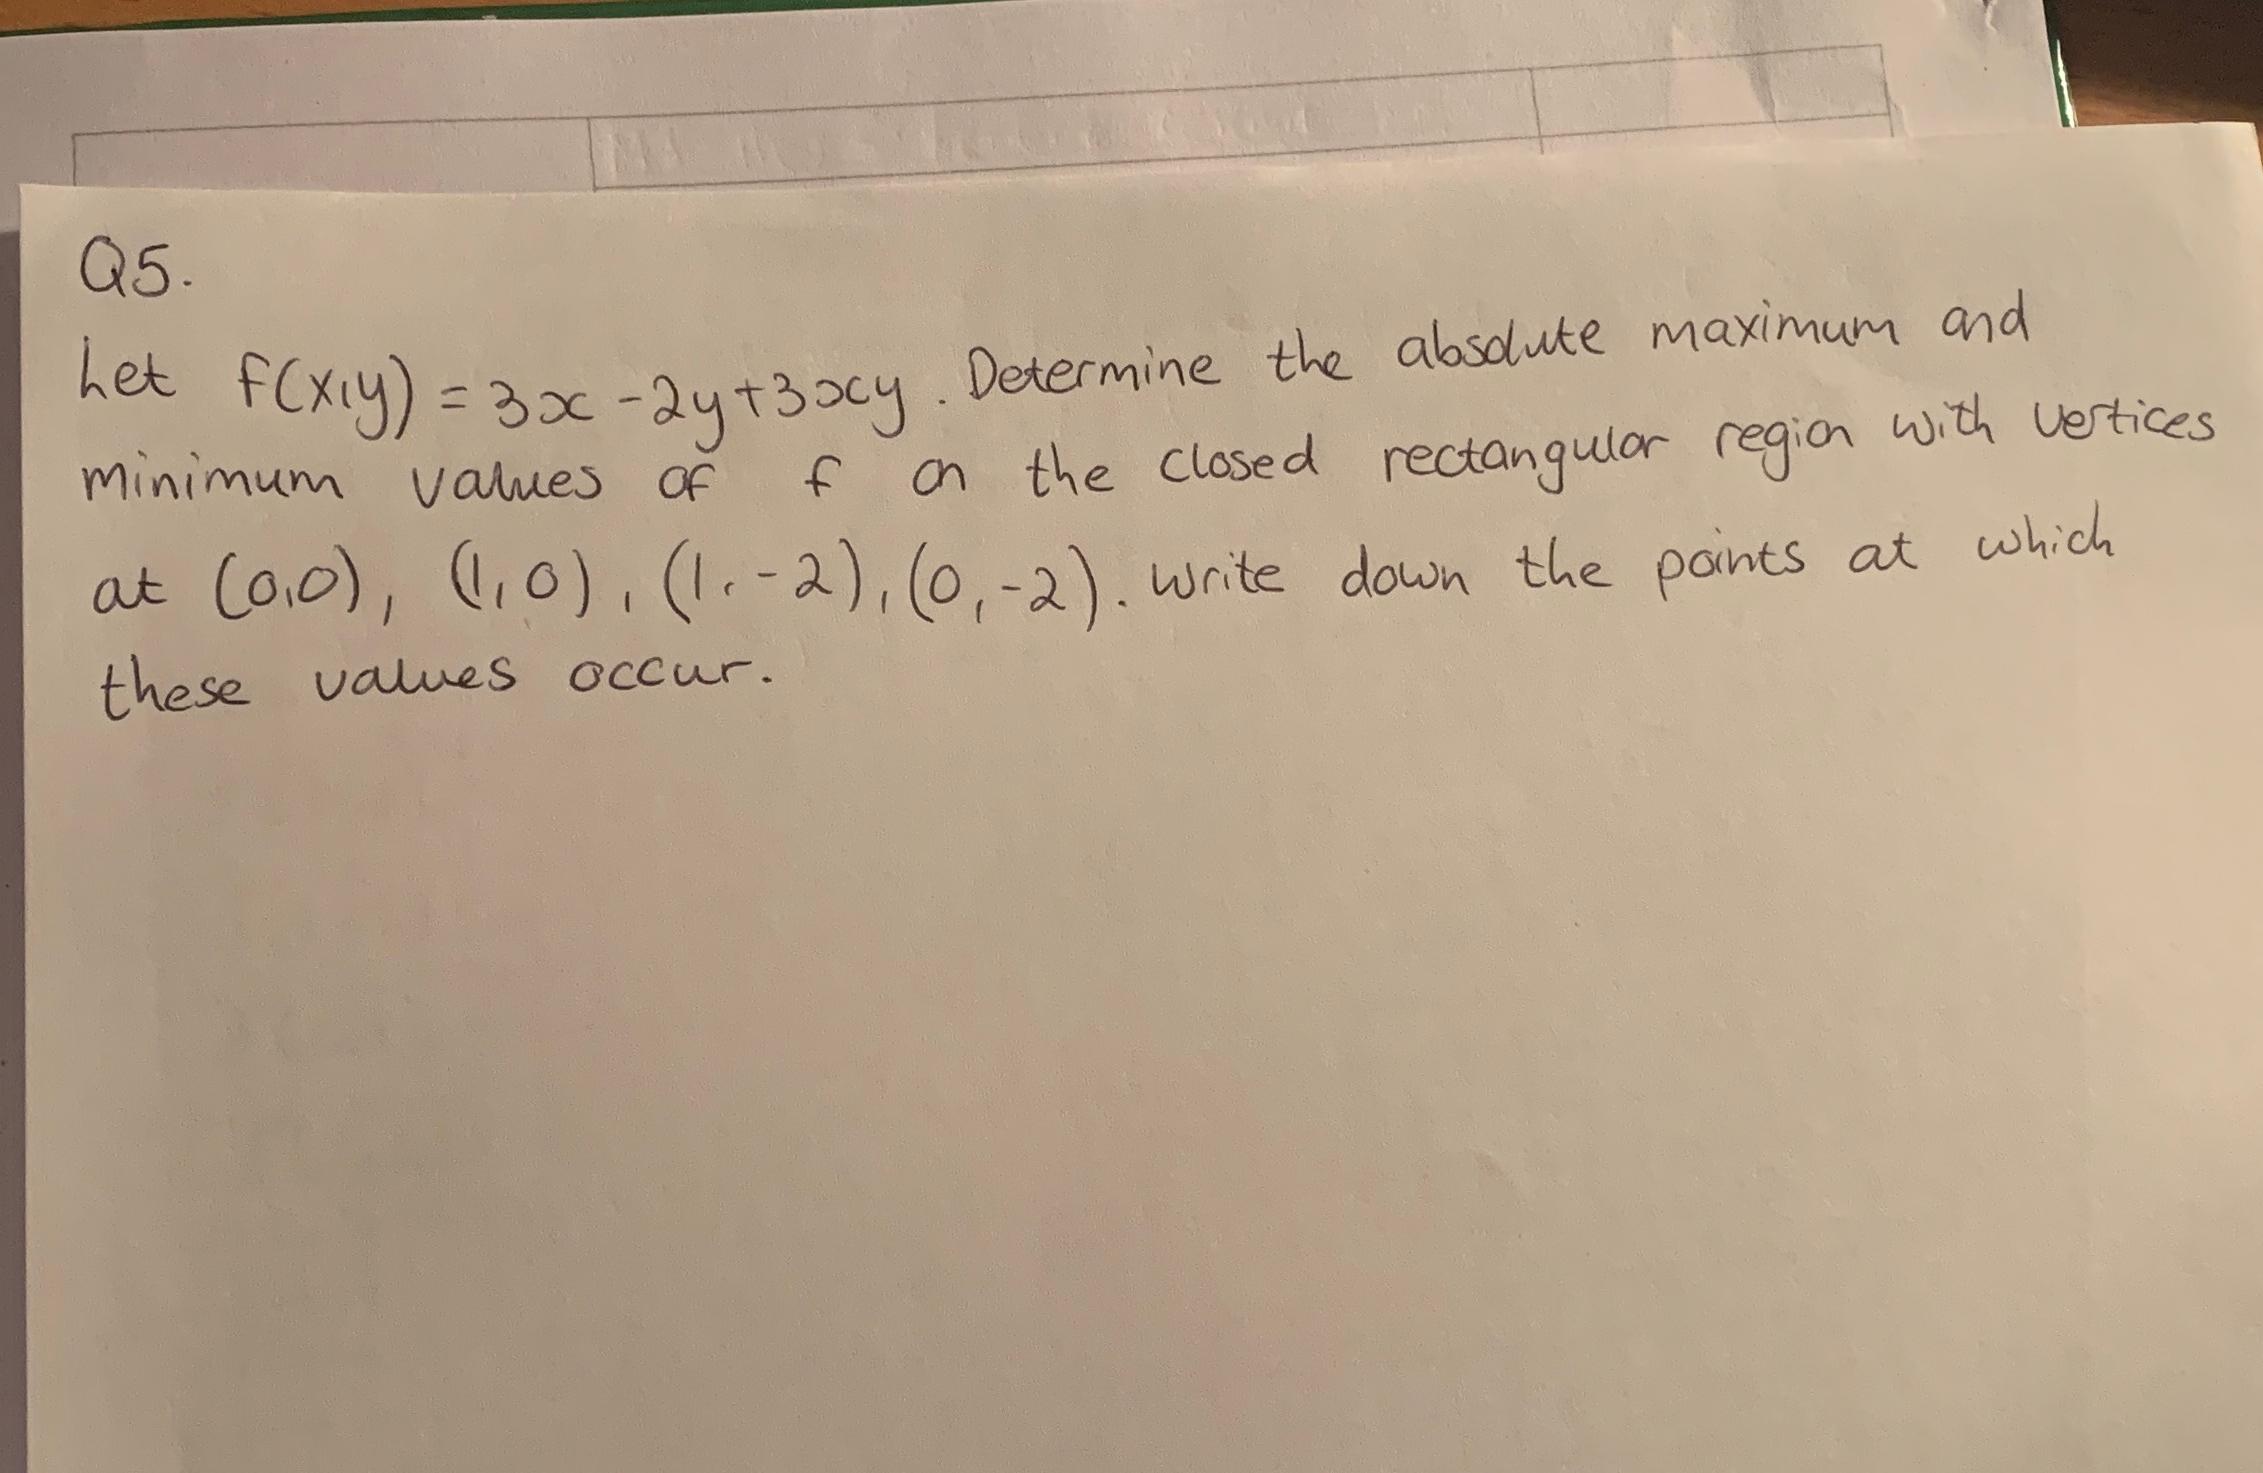 Q5.
Let f(x,y) = 3x - 2y + 3xy. Determine the absolute maximum and
minimum values of f on the closed rectangular region with vertices
at (0,0), (1,0), (1,-2), (0,-2). Write down the points at which
these values occur.